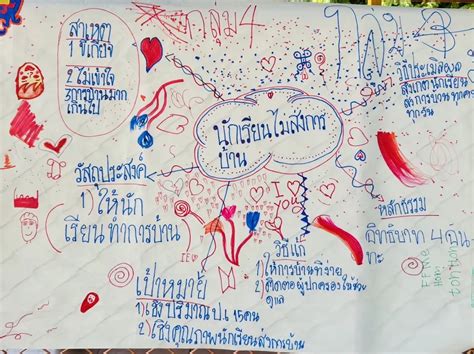 กลุ่ม 4
สาเหตุ
1 ขี้เกียจ
2 ไม่เข้าใจ
3 การบ้านมาก
เกินไป
นักเรียนไม่ส่งการ
บ้าน
วิธีประเมินผล
สังเกตนักเรียน
ส่งการบ้านทุกคาบ
ทุกวัน
วัตถุประสงค์
1) ให้นัก
เรียนทำการบ้าน
I YOU
หลักธรรม
อิทธิบาท 4 ฉัน
ทะ
วิธีแก้
1) ให้การบ้านที่ง่าย
2) ติดต่อผู้ปกครองให้ช่วย
ดูแล
เป้าหมาย
1) เชิงปริมาณ ป. 15 คน
2) เชิงคุณภาพนักเรียนส่งการบ้าน